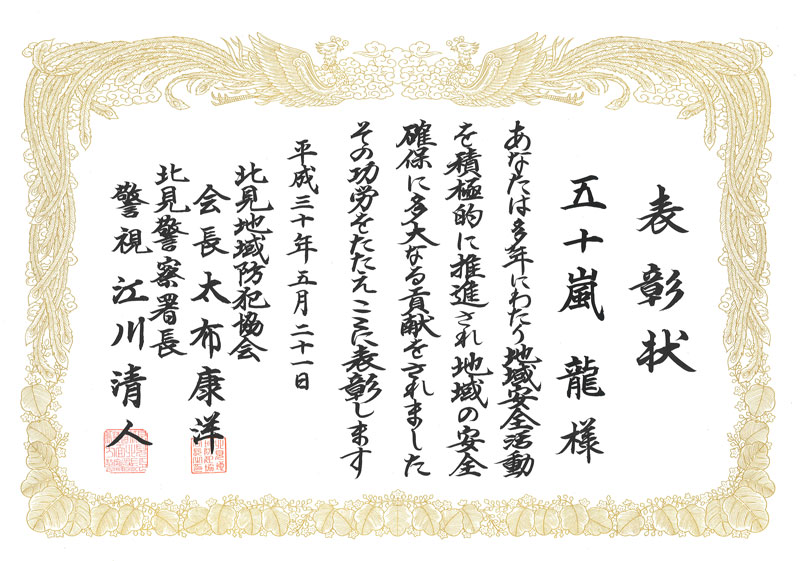 表彰状
五十嵐 龍 様
あなたは多年にわたり地域安全活動
を積極的に推進され地域の安全
確保に多大なる貢献をされました
その功労をたたえここに表彰します
平成三十年五月二十一日
北見地域防犯協会
会長 太布康洋
北見警察署長
警視 江川清人